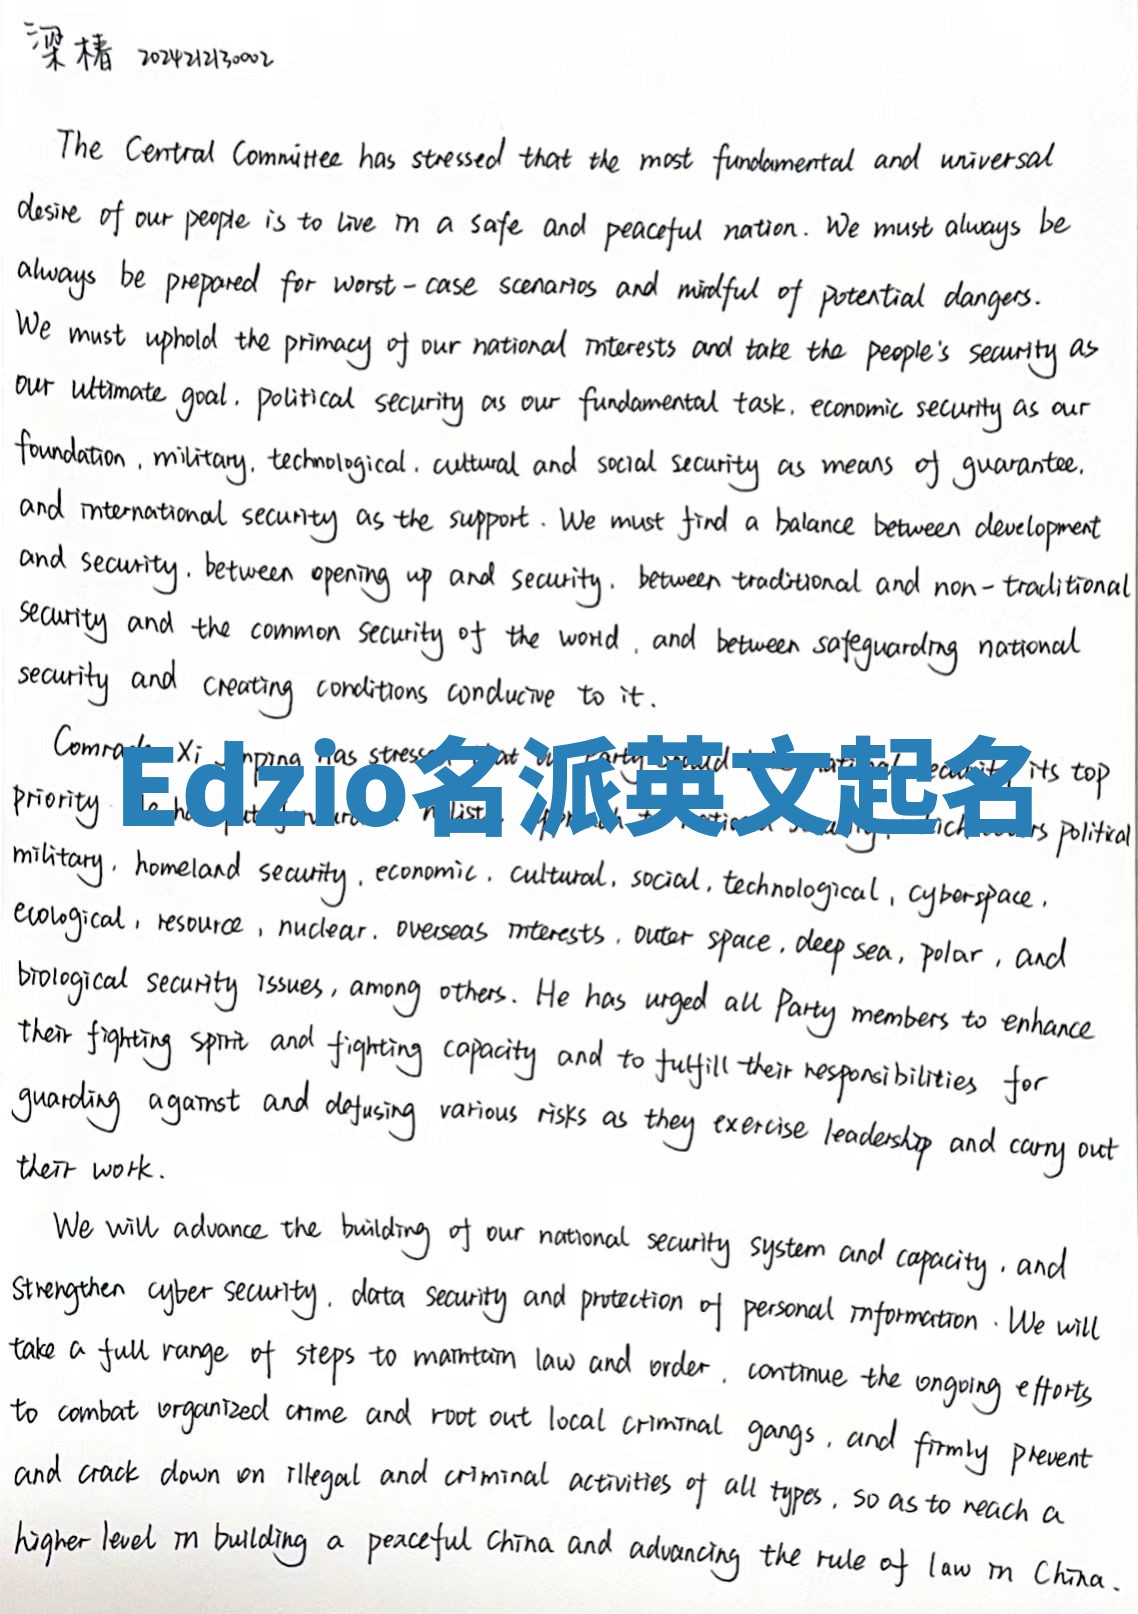 梁椿 2024212130002
The Central Committee has stressed that the most fundamental and universal
desire of our people is to live in a safe and peaceful nation. We must always be
always be prepared for worst-case scenarios and mindful of potential dangers.
We must uphold the primacy of our national interests and take the people's security as
our ultimate goal, political security as our fundamental task, economic security as our
foundation, military, technological, cultural and social security as means of guarantee,
and international security as the support. We must find a balance between development
and security, between opening up and security, between traditional and non-traditional
security and the common security of the world, and between safeguarding national
security and creating conditions conducive to it.
Comrade Xi Jinping has stressed that our Party should national security its top
Edzio名派英文起名
priority political
military, homeland security, economic, cultural, social, technological, cyberspace,
ecological, resource, nuclear, overseas interests, outer space, deep sea, polar, and
biological security issues, among others. He has urged all Party members to enhance
their fighting spirit and fighting capacity and to fulfill their responsibilities for
guarding against and defusing various risks as they exercise leadership and carry out
their work.
We will advance the building of our national security system and capacity, and
strengthen cyber security, data security and protection of personal information. We will
take a full range of steps to maintain law and order, continue the ongoing efforts
to combat organized crime and root out local criminal gangs, and firmly prevent
and crack down on illegal and criminal activities of all types, so as to reach a
higher level in building a peaceful China and advancing the rule of law in China.